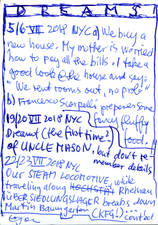 DREAMS
5/6 VII 2018 NYC a) We buy a
new house. My mother is worried
how to pay all the bills. I take a
good look @ the house and say:
"We rent rooms out, no prob."
b) Francisco proposes some
fancy fluffy food.
19/20 VII 2018 NYC
Dreamt (the first time?)
of UNCLE MASON, but don't re-
member details
22/23 VII 2018 NYC
Our STEAM LOCOMOTIVE, while
traveling along Rheinau
ÜBERSIEDLUNGSLAGER breaks down
Martin Baumgartner (KFG!)